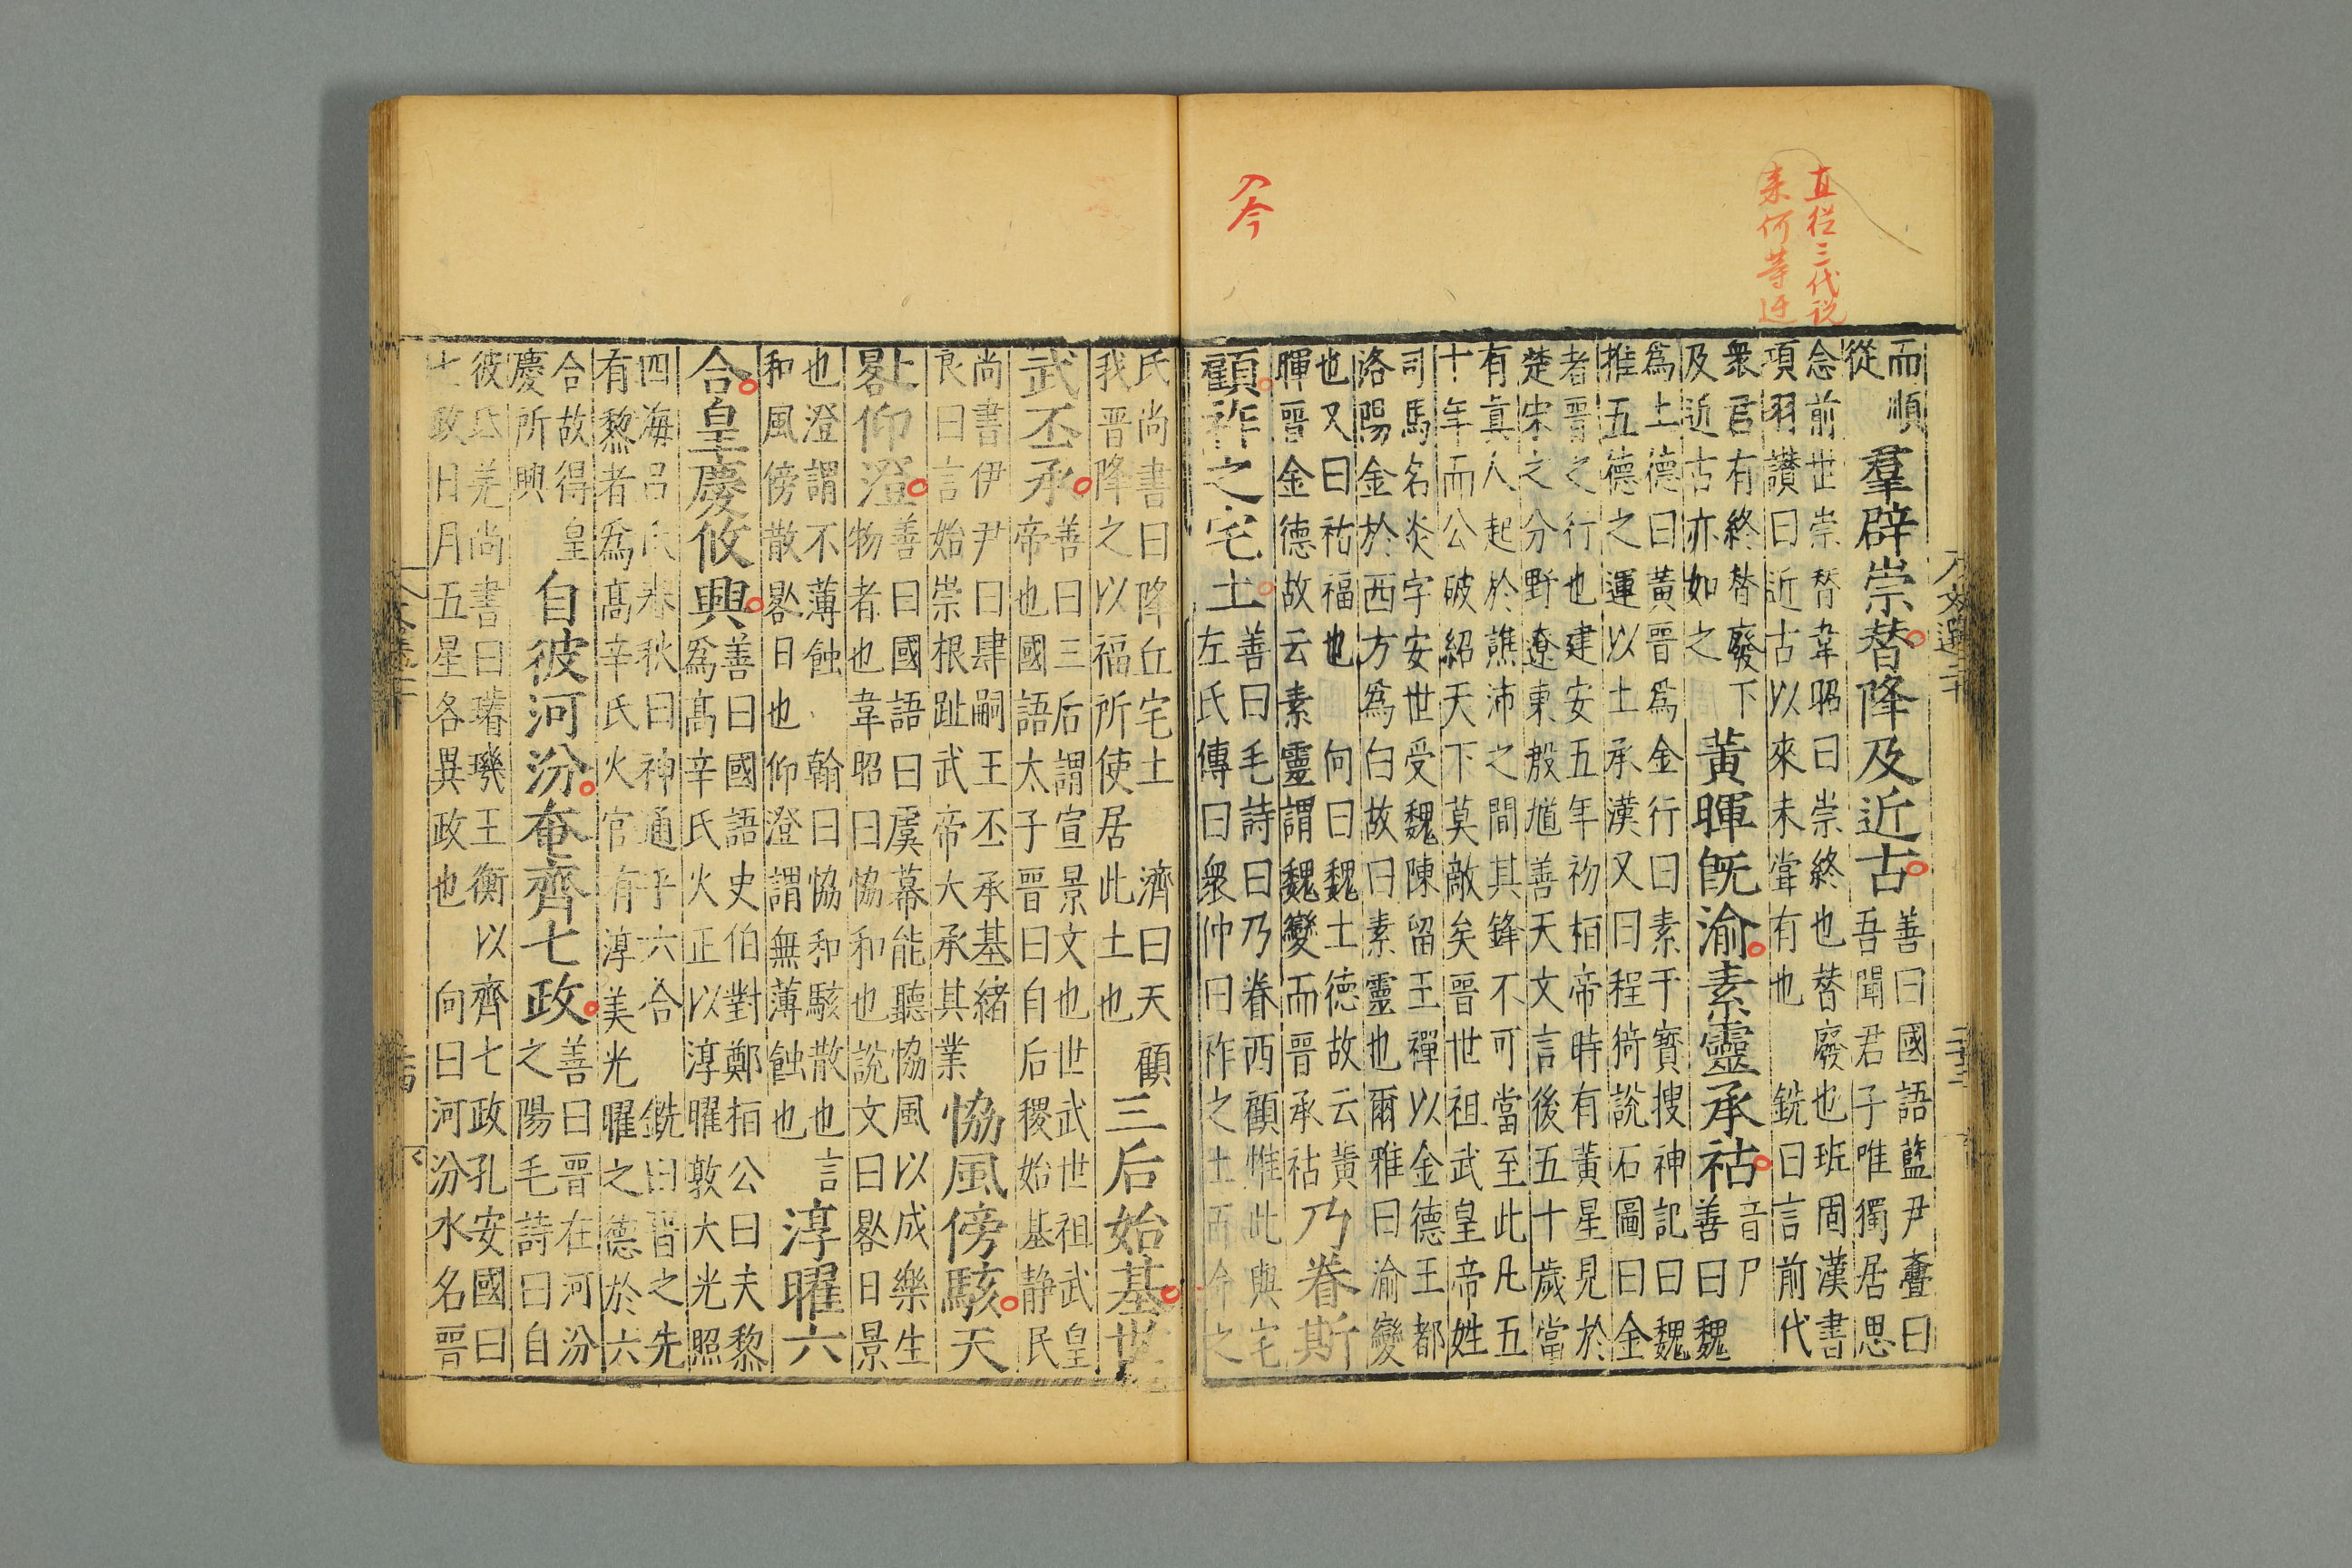 直従三代説
来何等迂
入今
而順
從
羣辟崇替降及近古
善曰國語藍尹亹曰
吾聞君子唯獨居思
念前世崇替韋昭曰崇終也替廢也班固漢書
項羽讚曰近古以來未甞有也 銑曰言前代
衆君有終替廢下
及近古亦如之
黃暉旣渝素靈承祜
音戸
善曰魏
爲土德曰黃晉爲金行曰素于寳搜神記曰魏
推五德之運以土承漢又曰程猗說石圖曰金
者晉之行也建安五年初栢帝時有黃星見於
楚宋之分野遼東殷馗善天文言後五十歲當
有真人起於譙沛之間其鋒不可當至此凡五
十年而公破紹天下莫敵矣晉世祖武皇帝姓
司馬名炎字安世受魏陳留王禪以金德王都
洛陽金於西方爲白故曰素靈也爾雅曰渝變
也又曰祜福也 向曰魏土德故云黃
暉晉金德故云素靈謂魏變而晉承祜
乃眷斯
顧祚之宅土
善曰毛詩曰乃眷西顧惟此與宅
左氏傳曰衆仲曰祚之土而命之
氏尚書曰降丘宅土 濟曰天顧
我晉降之以福所使居此土也
三后始基世
武丕承
善曰三后謂宣景文也世武世祖武皇
帝也國語太子晉曰自后稷始基静民
尚書伊尹曰肆嗣王丕承基緒
良曰言始崇根趾武帝大承其業
恊風傍駭天
晷仰澄
善曰國語曰虞幕能聽恊風以成樂生
物者也韋昭曰恊和也說文曰晷日景
也澄謂不薄蝕 翰曰恊和駭散也言
和風傍散晷日也仰澄謂無薄蝕也
淳曜六
合皇慶攸興
善曰國語史伯對鄭栢公曰夫黎
爲髙辛氏火正以淳曜敦大光照
四海吕氏春秋曰神通乎六合 銑曰晉之先
有黎者爲髙辛氏火官有淳美光曜之德於六
合故得皇
慶所興
自彼河汾奄齊七政
善曰晉在河汾
之陽毛詩曰自
彼氐羌尚書曰璿璣玉衡以齊七政孔安國曰
七政日月五星各異政也 向曰河汾水名晉